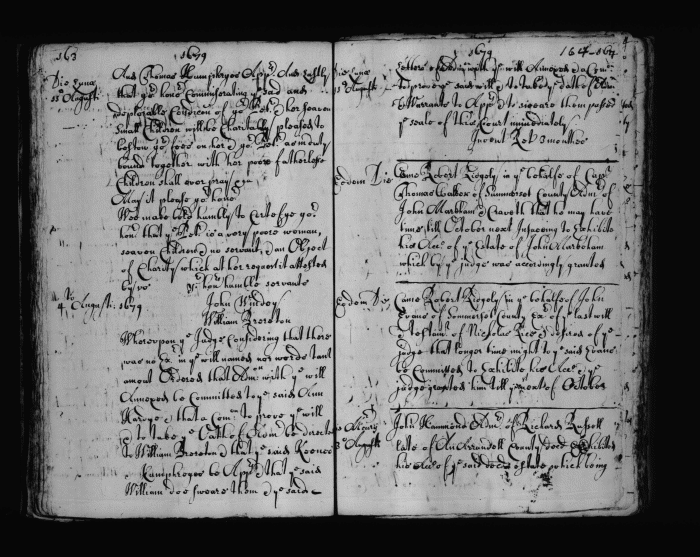 163
1679
Die Lunæ
Ano Thomas Humphryes App.rs And lastly
11.o Augusti
that yo.r hono.r Commiserating y.e sad and
deplorable Condicon of yo.r Pet.r & her seaven
small Children will be Charitably pleased to
bestow yo.r fees on her & yo.r Pet.r as in duty
bound together with her poore fatherlesse
Children shall ever pray &c
May it please yo.r hono.r
Wee make bold humbly to Certefye yo.r
hon.r that y.e Pet.r is a very poore woman,
seaven Children & no servant, & an Object
of Charity which at her request is attested
by yo.r hon.rs humble servants
4.th Augusti: 1679
John
William Brereton
Whereupon y.e Judge Considering that there
was no Ex.r in y.e will named nor words tant
amount Ordered that Adm.on with y.e will
Annexed be Committed to y.e said Ann
& that a Com.n to prove y.e will
& to take y.e Oath of Adm.x be directed
to William Brereton & that y.e said
Humphryes be App.rs & that y.e said
William doe sweare them & y.e said
1679
164
Die Lunæ
11.o Augusti
letters of Adm.on with y.e will Annexed & a Com.n
to prove y.e said will & to take y.e Oath of
& Warrant to App.rs & to sweare them passed
y.e seale of this Court immediately
Invent Ret.o 3 monthes
Eodem Die
Came Robert Ridgely in y.e behalfe of Cap.t
Thomas Walker of Summersett County Adm.r of
John Markham & Craveth that he may have
time till October next Insueing to Exhibite
his Acc.t of y.e Estate of John Markham
which by y.e Judge was accordingly granted
Eodem Die
Came Robert Ridgely in y.e behalfe of John
Evans of Somersett County Ex.r of y.e last will
& testam.t of Nicholas Rice & desired of y.e
Judge that longer time might to y.e said Evans
be Committed to Exhibite his Acc.t y.e
Judge granted him till y.e month of October
Die
Augusti
John Hammond Adm.r of Richard Russell
late of Ann Arrundell County decd Exhibited
his Acc.t of y.e said decds estate which being